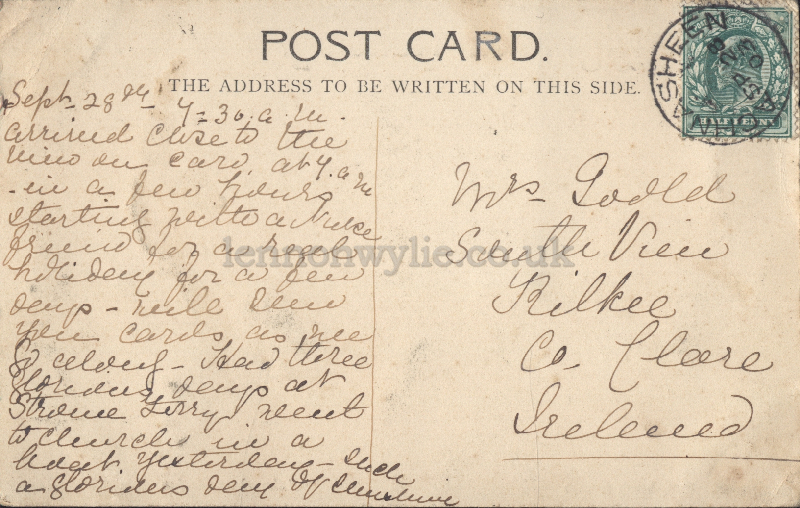 POST CARD.
THE ADDRESS TO BE WRITTEN ON THIS SIDE.
Sept 28th 7-30. a.m.
arrived close to the
view on card, at 7. a.m
- in a few hours
starting with a
friend for a regal
holiday for a few
days - will send
you cards as we
go along - Had three
glorious days at
Strome Ferry went
to church in a
boat yesterday - such
a glorious day of sunshine
Mrs
South View
Kilkee
Co. Clare
Ireland
HALF PENNY
SHEEN
SP 28
03
lennonwylie.co.uk